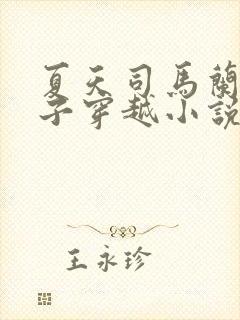 夏天司馬蘭
子穿越小說
王永珍